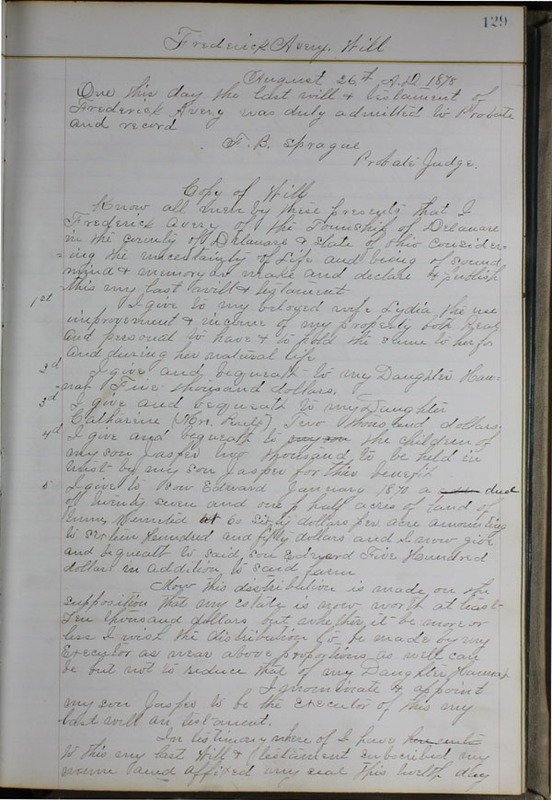 129
Frederick Avery. Will
August 26th A.D. 1878
One this day the last will & testament of
Frederick Avery was duly admitted to Probate
and record
F. B. Sprague
Probate Judge.
Copy of Will
Know all men by these presents that I
Frederick Avery of the Township of Delaware
in the County of Delaware & State of Ohio consider=
=ing the uncertainty of life and being of sound
mind & memory do make and declare & publish
this my last will & testament
1st I give to my beloved wife Lydia the use
improvement & income of my property both Real
and personal to have & to hold the same to her for
and during her natural life
2d I give and bequeath to my Daughter Han-
nah Five thousand dollars,
3d I give and bequeath to my Daughter
Catharine (Mrs. ) Two thousand dollars
4th I give and bequeath to my son the children of
my son Jasper two thousand to be held in
trust by my son Jasper for their benefit
5 I give to son Edward January 1870 a deed
off twenty seven and one half acres of land of
at 60 sixty dollars per acre amounting
to Hundred and fifty dollars and I now give
and bequeath to said son Edward Five Hundred
dollars in addition to said farm
Now this distribution is made on the
supposition that my estate is now worth at least
Ten thousand dollars but whether it be more or
less I wish the distribution to be made by my
Executor as near above proportions as well can
be but not to reduce that of my Daughter Hannah
I nominate & appoint
my son Jasper to be the executor of this my
last will an testament.
In testimony where of I have
to this my last Will & testament subscribed my
name and affixed my seal this day